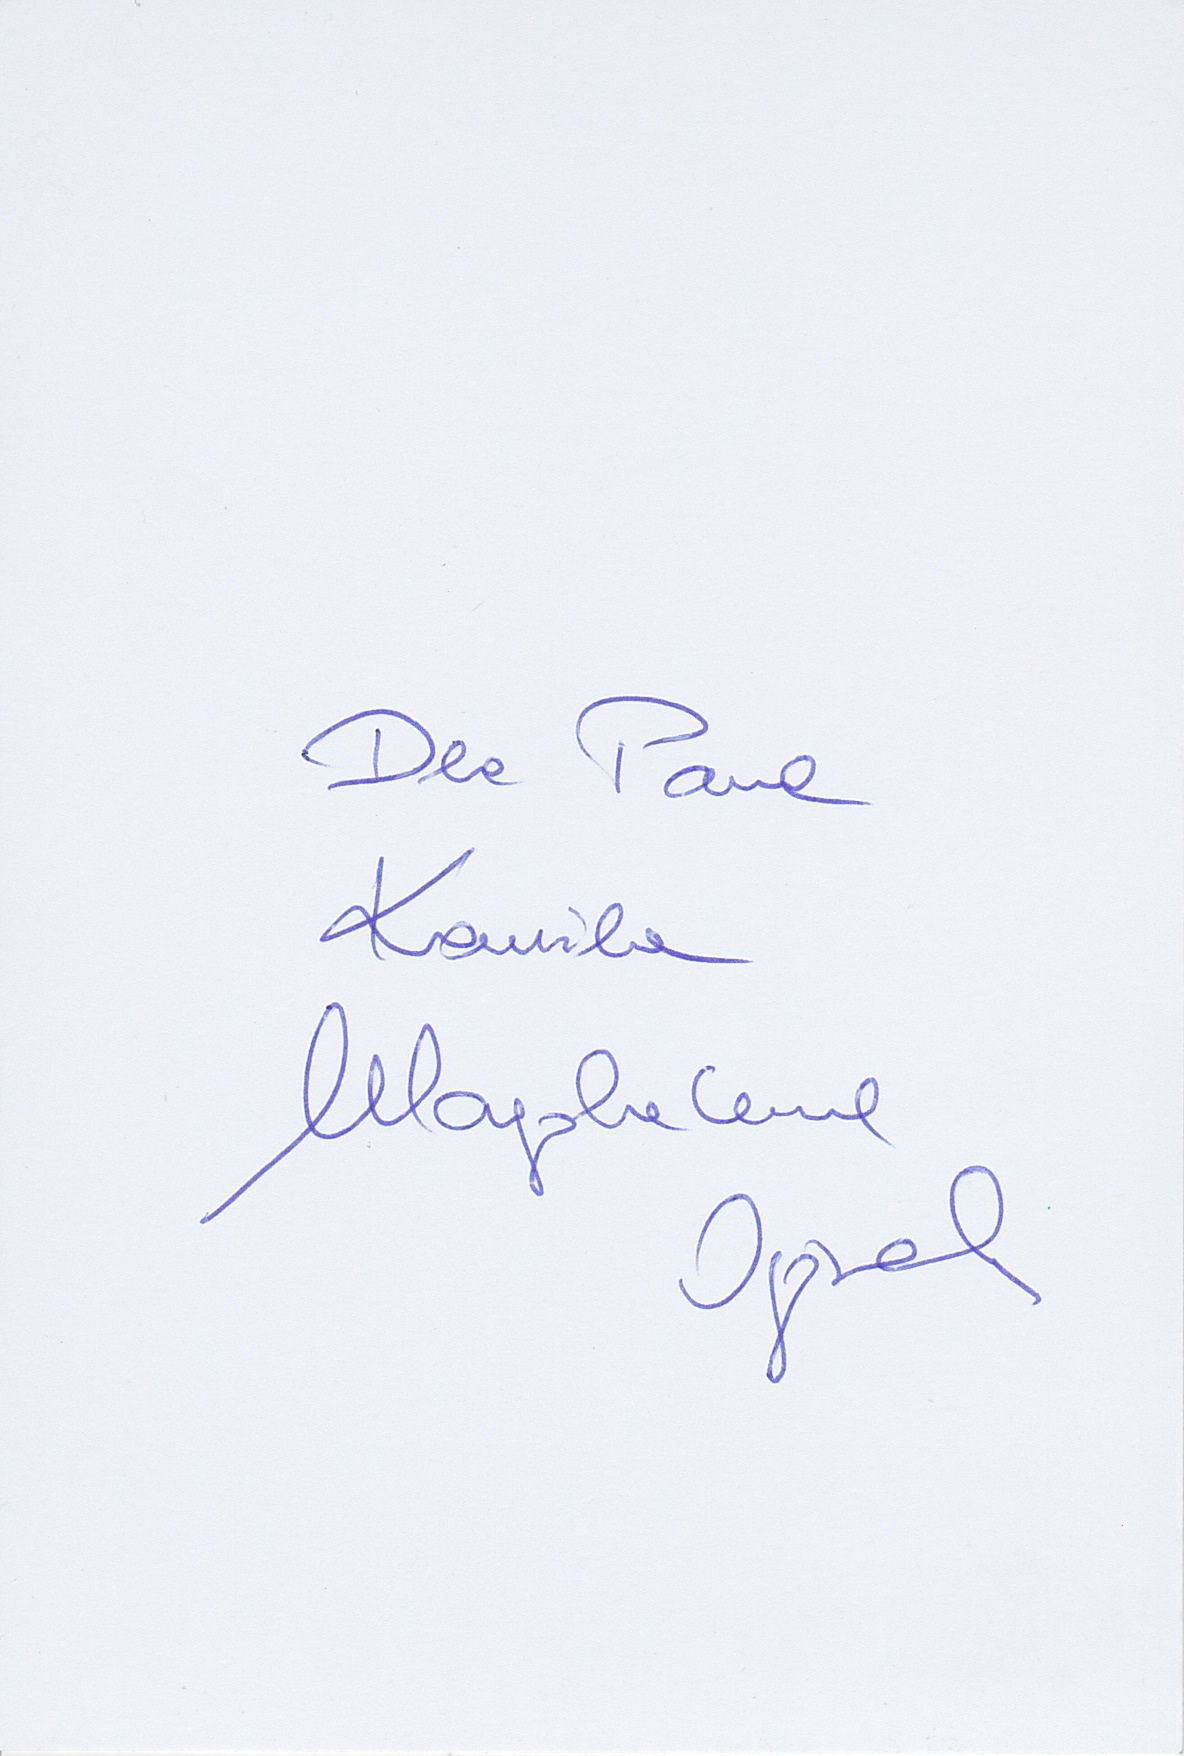 Dla Pana
Kamila
Magdalena
Ogórek